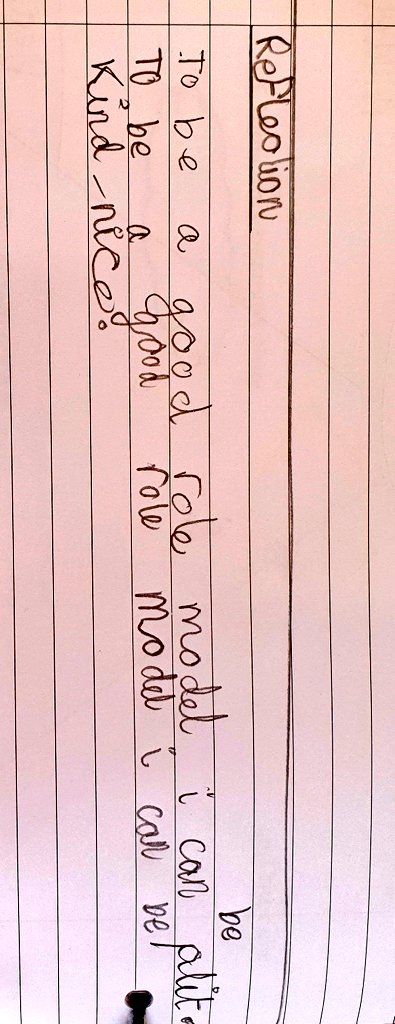 Reflection
be
To be a good role model i can
To be a good role model i can be
Kind - nice.